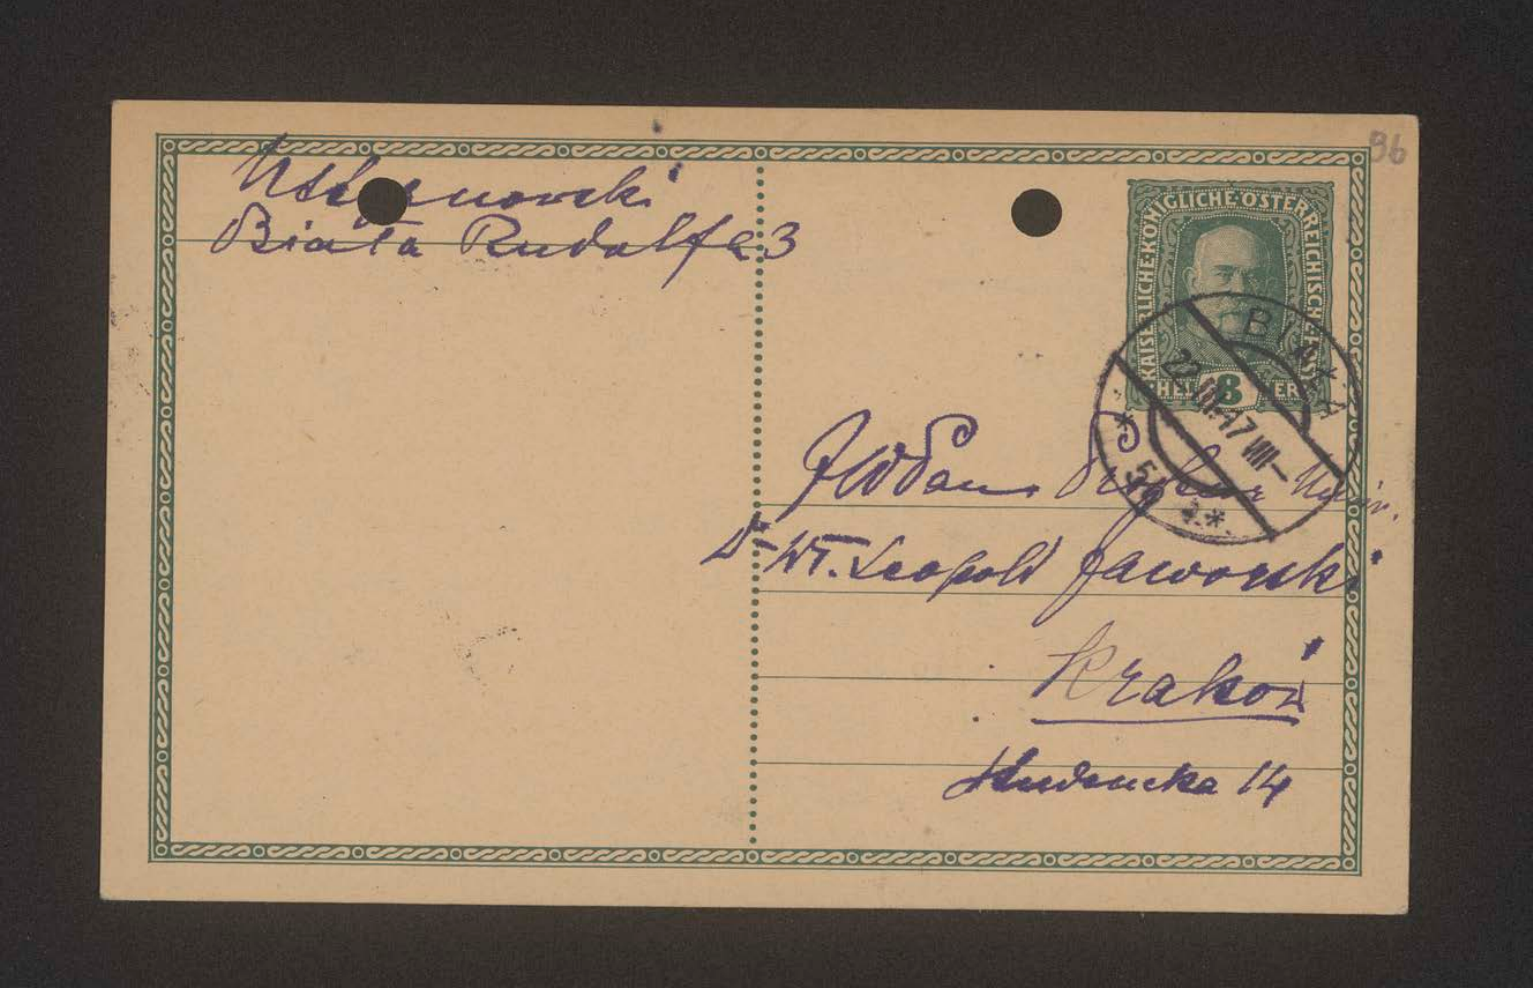 96
Biała Rudolfa 3
KAISERLICHE·KÖNIGLICHE·ÖSTERREICHISCHE·POST
8
BIAŁA
22 VIII 17 VIII
* 5b *
JWPan Profesor Uniw.
Dr Wł. Leopold Jaworski
Kraków
Studencka 14